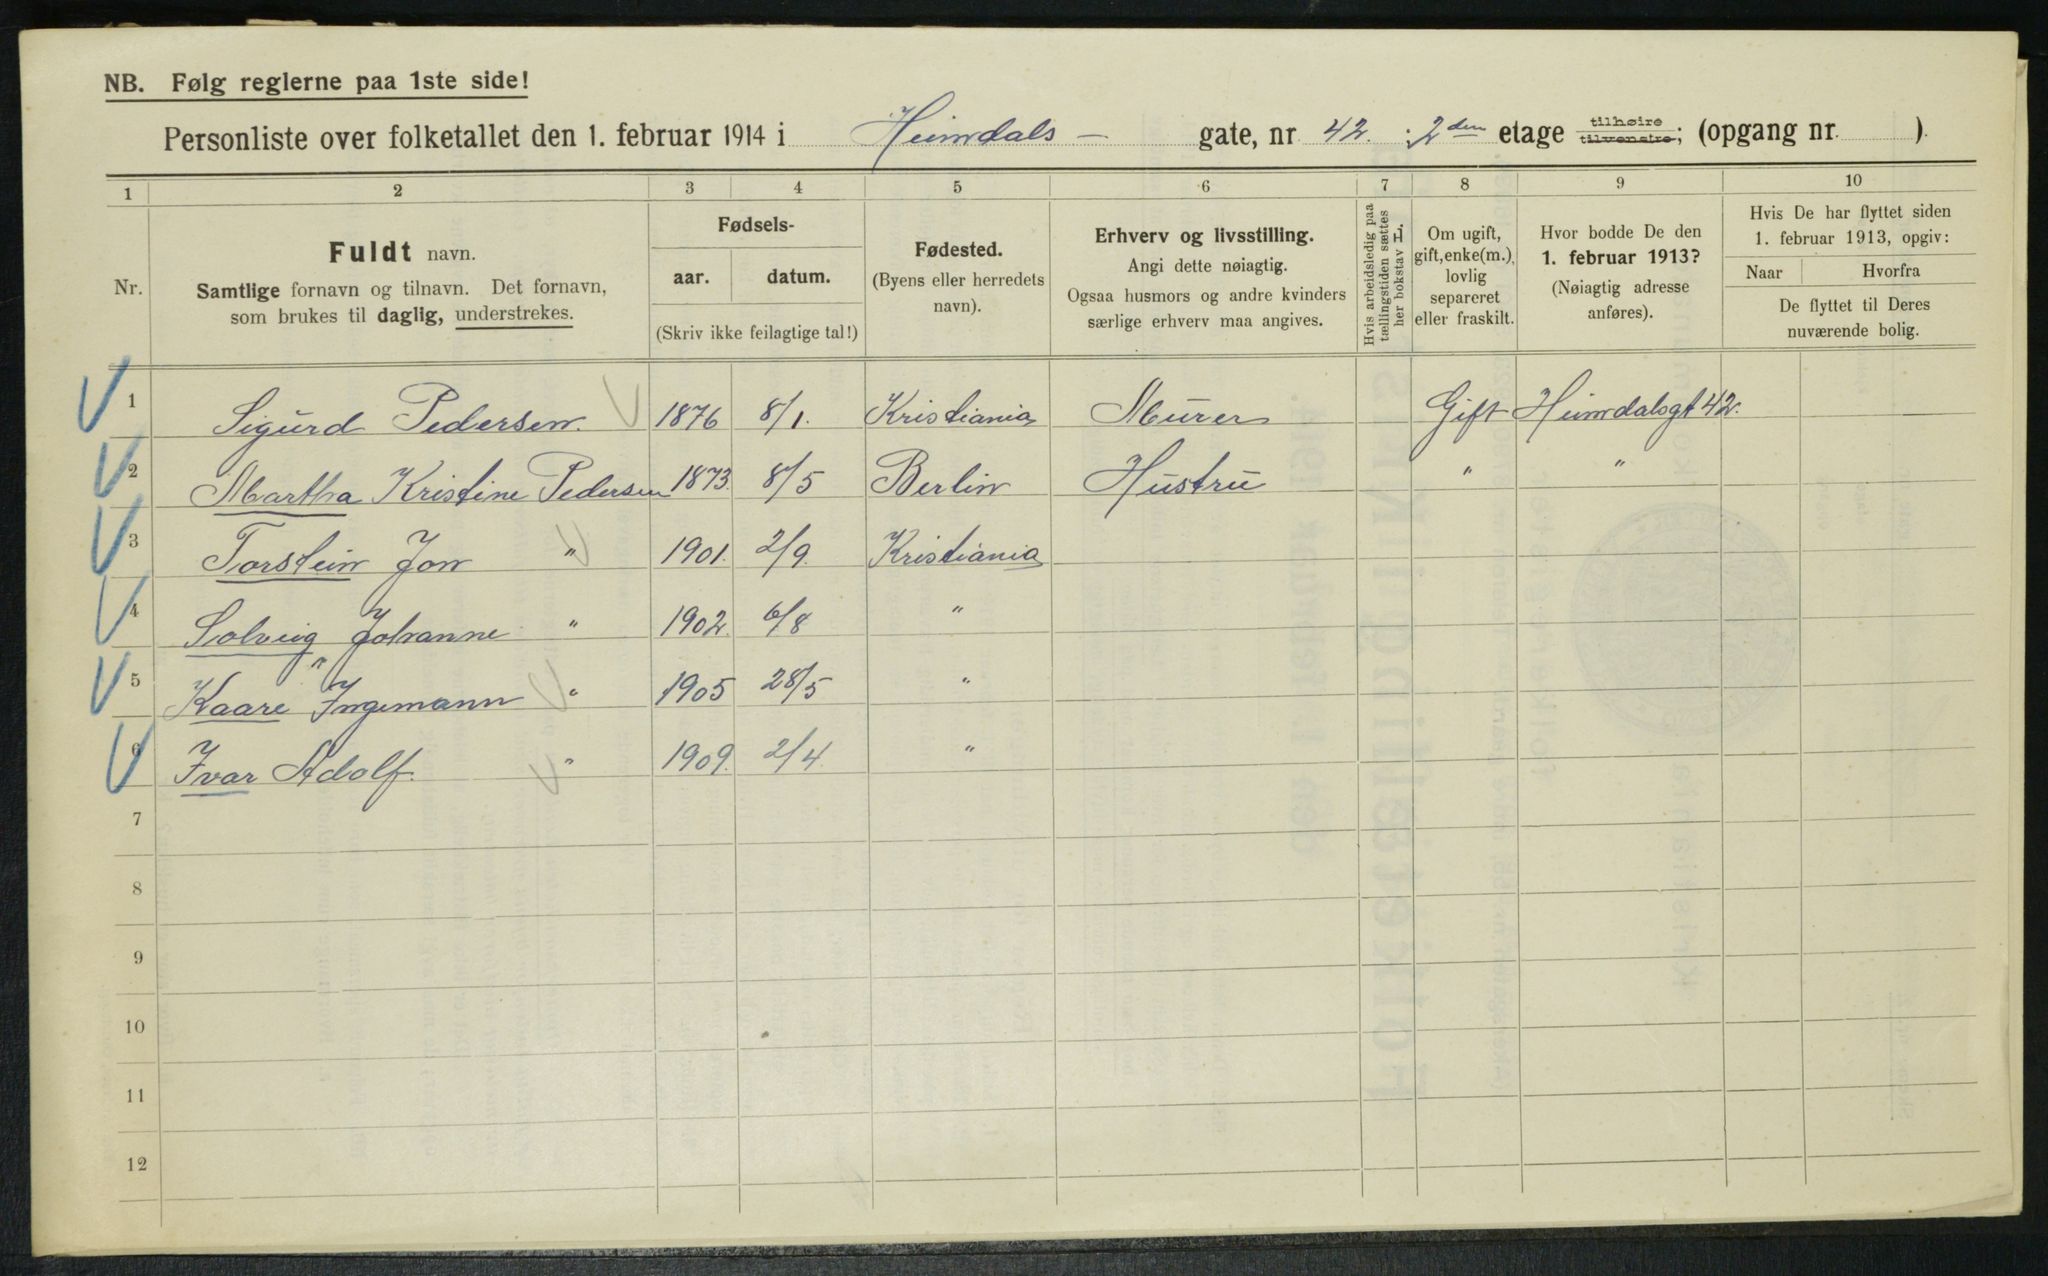 NB. Følg reglerne paa 1ste side!
Personliste over folketallet den 1. februar 1914 i Heimdals - gate, nr 42. 2den etage tilhøire tilvenstre; (opgang nr. ).
1 2 3 4 5 6 7 8 9 10
Nr.
Fuldt navn.
Samtlige fornavn og tilnavn. Det fornavn,
som brukes til daglig, understrekes.
Fødsels-
aar. datum.
(Skriv ikke feilagtige tal!)
Fødested.
(Byens eller herredets
navn).
Erhverv og livsstilling.
Angi dette nøiagtig.
Ogsaa husmors og andre kvinders
særlige erhverv maa angives.
Hvis arbeidsledig paa
tællingstiden sættes
her bokstav L.
Om ugift,
gift, enke(m.),
lovlig
separeret
eller fraskilt.
Hvor bodde De den
1. februar 1913?
(Nøiagtig adresse
anføres).
Hvis De har flyttet siden
1. februar 1913, opgiv:
Naar Hvorfra
De flyttet til Deres
nuværende bolig.
1 Sigurd Pedersen. 1876 8/1. Kristiania Murer Gift Heimdalsgt 42.
2 Martha Kristine Pedersen 1873. 8/5 Berlin Hustru " "
3 Torstein Jon " 1901. 2/9. Kristiania
4 Solveig Johanne " 1902. 6/8 "
5 Kaare " Ingemann " 1905 28/5 "
6 Ivar Adolf. " 1909. 2/4. "
7
8
9
10
11
12